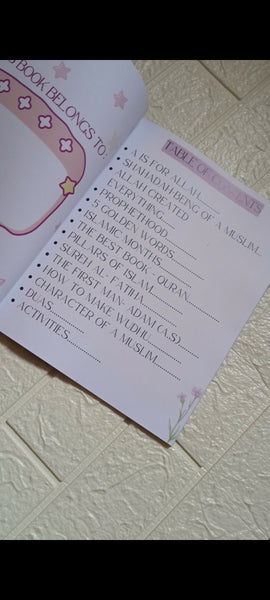 BOOK BELONGS TO:
TABLE OF CONTENTS
A IS FOR ALLAH..........
SHAHADAH-BEING OF A MUSLIM...
ALLAH CREATED
EVERYTHING.....
PROPHETHOOD..........
5 GOLDEN WORDS..........
ISLAMIC MONTHS..........
THE BEST BOOK - QURAN..........
PILLARS OF ISLAM..........
SUREH AL - FATIHA..........
THE FIRST MAN- ADAM (A.S)..........
HOW TO MAKE WUDHU..........
CHARACTER OF A MUSLIM..........
DUAS..........
ACTIVITIES..........